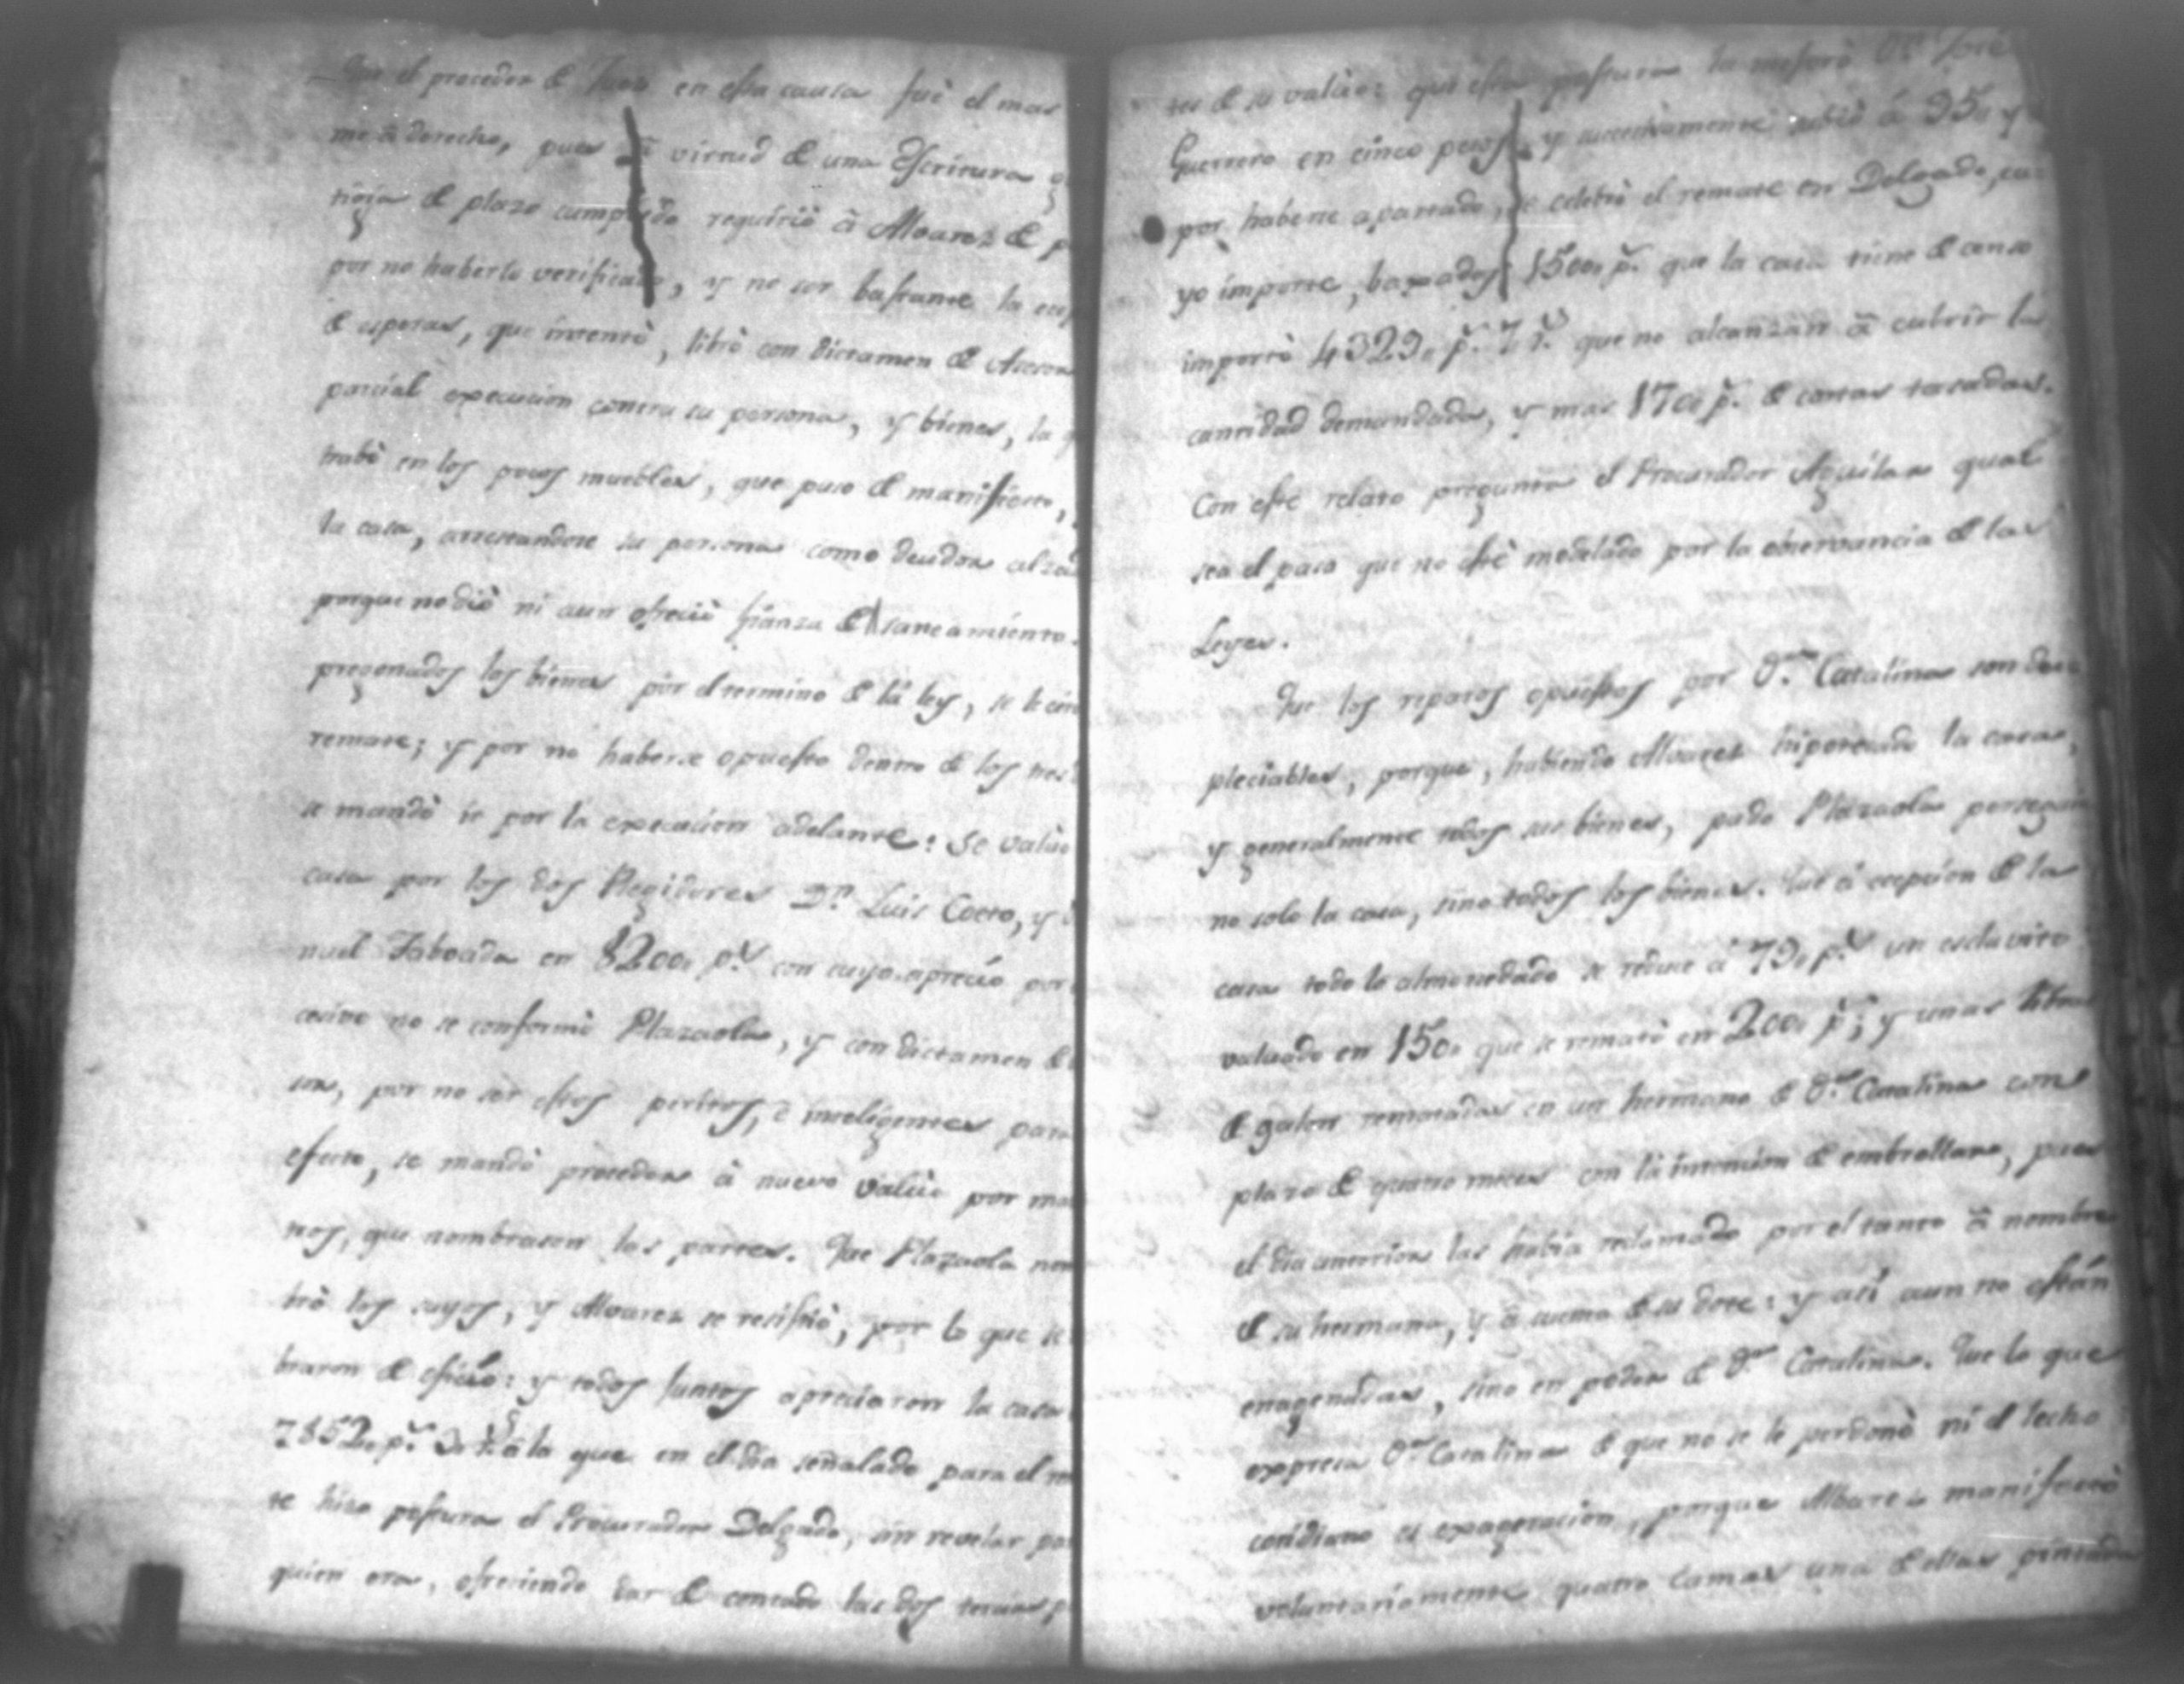 Que el proceder de Juez en esta causa fué el mas
me â derecho, pues â virtud de una Escritura
tigia de plazo cumplido requirió â Alvarez de p
por no haberlo verificado, y no ser bastante la
de esperas, que intentó, libró con dictamen de Acesor
parcial execucion contra su persona, y bienes, la q
trabó en los pocos muebles, que puso de manifiesto,
la casa, arrestandose su persona como deudor alzad
porque no dió ni aun ofreció fianza de saneamiento.
pregonados los bienes por el termino de la ley, se le
remate; y por no haberse opuesto dentro de los tres
se mandó ir por la execucion adelante: se valuó
casa por los dos Regidores Dn. Luis Coeto, y
nuel Taboada en 8200 ps. con cuyo aprecio por
cesivo no se conformó Plazaola, y con dictamen de
sor, por no ser estos peritos, è inteligentes para
efecto, se mandó proceder â nuevo valúo por ma
nos, que nombrasen las partes. Que Plazaola nom
bró los suyos, y Alvarez se resistió, por lo que se
braron de oficio: y todos juntos apreciaron la casa
7852 ps. 3 rs. â la que en el dia señalado para el re
te hizo postura el Procurador Delgado, sin revelar par
quien era, ofreciendo dar de contado las dos tercias p
tes de su valúo: que esta postura la mejoró Dn. José
Guerrero en cinco pesos, y sucesivamente subió â 95 y
por haberse apartado, se celebró el remate en Delgado, cu
yo importe, baxados 1500 ps. que la casa tiene de censo
importó 4329 ps. 7 rs. que no alcanzan â cubrir la
cantidad demandada, y mas 170 ps. de costas tasadas.
Con este relato pregunta el Procurador Aguilar qual
sea el paso que no esté modelado por la observancia de las
Leyes.
Que los reparos opuestos por Da. Catalina son des
pleciables, porque, habiendo Alvarez hipotecado la casa,
y generalmente todos sus bienes, pudo Plazaola perseguir
no solo la casa, sino todos los bienes. Que â ecepcion de la
casa todo lo almonedado se reduce â 79 ps. un esclavito
valuado en 150 que se remató en 200 ps; y unas libras
de galon rematadas en un hermano de Da. Catalina con
plazo de quatro meses con la intencion de embrollarse, pues
el dia anterior las habia reclamado por el tanto â nombre
de su hermana, y â cuenta de su dote: y asi aun no están
enagenadas, sino en poder de Da. Catalina. Que lo que
expresa Da. Catalina de que no se le perdonó ni el lecho
cotidiano es exageracion, porque Alvarez manifestó
voluntariamente quatro camas una de ellas pintada